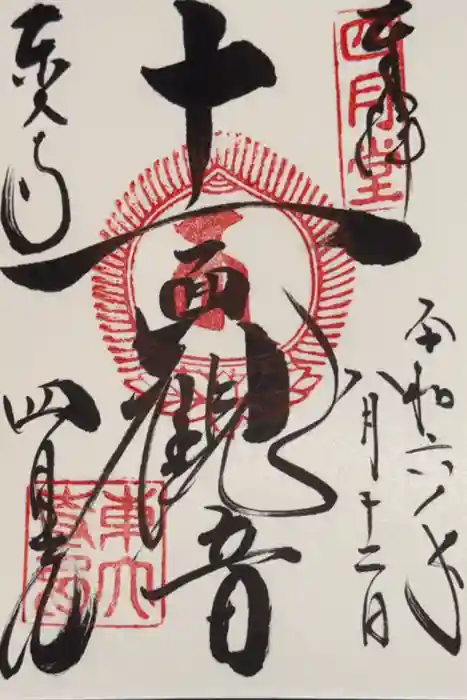 奉拝
四月堂
令和六年
八月十二日
十一面観音
東大寺
四月堂